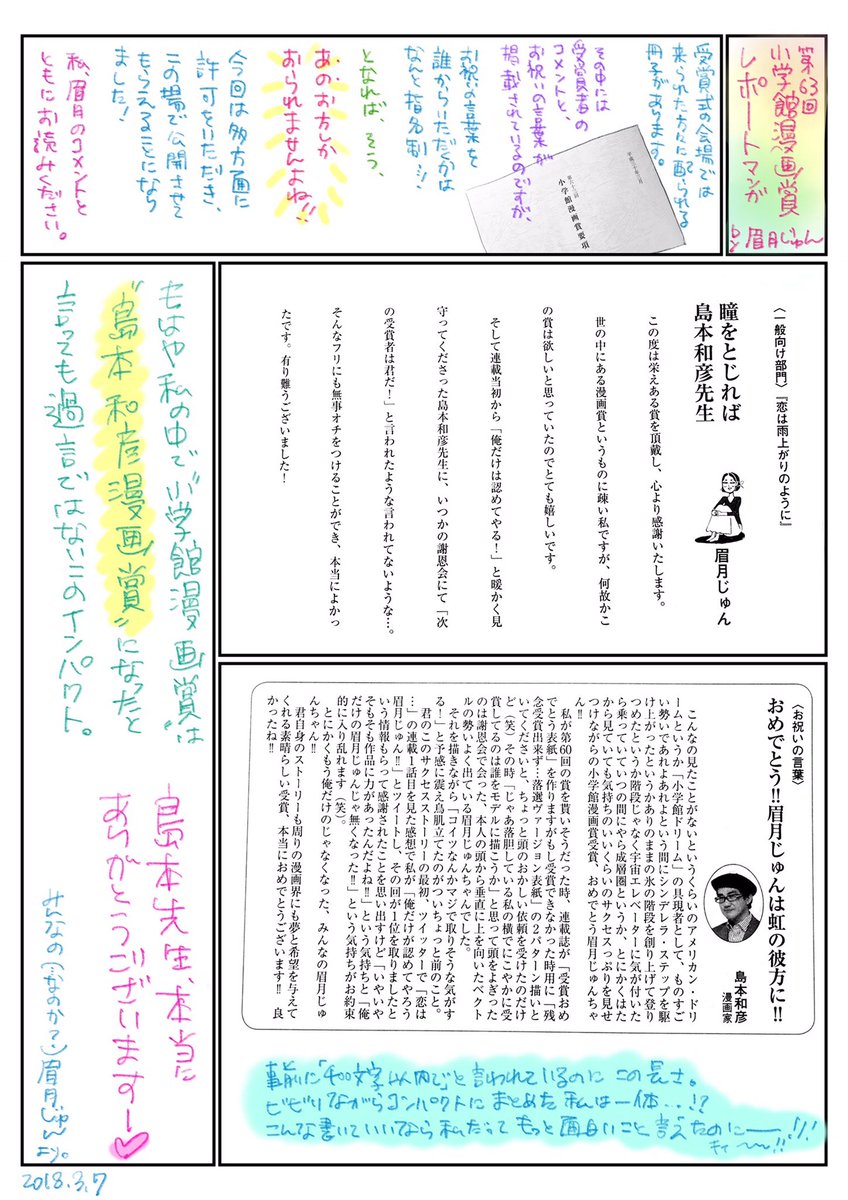 第63回
小学館漫画賞
レポートマンガ
by 眉月じゅん
受賞式の会場では
来られた方々に配られる
冊子があります。
その中には
受賞者の
コメントと、
お祝いの言葉が
掲載されているのですが、
お祝いの言葉を
誰からいただくかは
なんと指名制…!
となれば、そう、
あのお方しか
おられませんよね!!
今回は多方面に
許可をいただき、
この場で公開させて
もらえることになり
ました!
私、眉月のコメントと
ともにお読みください。
第六十三回
小学館漫画賞要項
〈一般向け部門〉『恋は雨上がりのように』
瞳をとじれば
島本和彦先生
眉月じゅん
この度は栄えある賞を頂戴し、心より感謝いたします。
世の中にある漫画賞というものに疎い私ですが、何故かこ
の賞は欲しいと思っていたのでとても嬉しいです。
そして連載当初から「俺だけは認めてやる!」と暖かく見
守ってくださった島本和彦先生に、いつかの謝恩会にて「次
の受賞者は君だ!」と言われたような言われてないような…。
そんなフリにも無事オチをつけることができ、本当によかっ
たです。有り難うございました!
〈お祝いの言葉〉
おめでとう!!眉月じゅんは虹の彼方に!!
島本和彦
漫画家
こんなの見たことがないというくらいのアメリカン・ドリ
ームというか「小学館ドリーム」の具現者として、ものすご
い勢いであれよあれよという間にシンデレラ・ステップを駆
け上がったというかありのままの氷の階段を創り上げて登り
つめたというか階段じゃなく宇宙エレベーターに気が付いた
ら乗っていていつの間にやら成層圏というか、とにかくはた
から見ていても気持ちのいいくらいのサクセスっぷりを見せ
つけながらの小学館漫画賞受賞、おめでとう眉月じゅんちゃ
ん!!
私が第60回の賞を貰いそうだった時、連載誌が「受賞おめ
でとう表紙」を作りますがもし受賞できなかった時用に「残
念受賞出来ず…落選ヴァージョン表紙」の2パターン描いと
いてくださいと、ちょっと頭のおかしい依頼を受けたのだけ
ど(笑)その時「じゃあ落胆している私の横でにこやかに受
賞してるのは誰をモデルに描こうか」と思って頭をよぎった
のは謝恩会で会った、本人の頭から垂直に上を向いたベクト
ルの勢いよく出ている眉月じゅんちゃんでした。
それを描きながら「コイツなんかマジで取りそうな気がす
る!」と予感に震え鳥肌立てたのがついちょっと前のこと。
君のこのサクセスストーリーの最初、ツイッターで「恋は
…」の連載1話目を見た感想で私が「俺だけが認めてやろう
眉月じゅん!!」とツイートし、その回が1位を取りましたと
いう情報もらって感謝されたことを思い出すけど「いやいや
そもそも作品に力があったんだよね!!」という気持ちと「俺
だけの眉月じゅんじゃ無くなった!!」という気持ちがお約束
的に入り乱れます(笑)。
とにかくもう俺だけのじゃなくなった、みんなの眉月じゅ
んちゃん!!
君自身のストーリーも周りの漫画界にも夢と希望を与えて
くれる素晴らしい受賞、本当におめでとうございます!!良
かったね!!
事前に「400文字以内で」と言われているのにこの長さ。
ビビりながらコンパクトにまとめた私は一体…!?
こんな書いていいなら私だってもっと面白いこと言えたのにー!!
キィ〜〜!!
もはや私の中で“小学館漫画賞”は
“島本和彦漫画賞”になったと
言っても過言ではないこのインパクト。
島本先生、本当に
ありがとうございますー♡
みんなの(…なのか?)眉月じゅんより。
2018.3.7